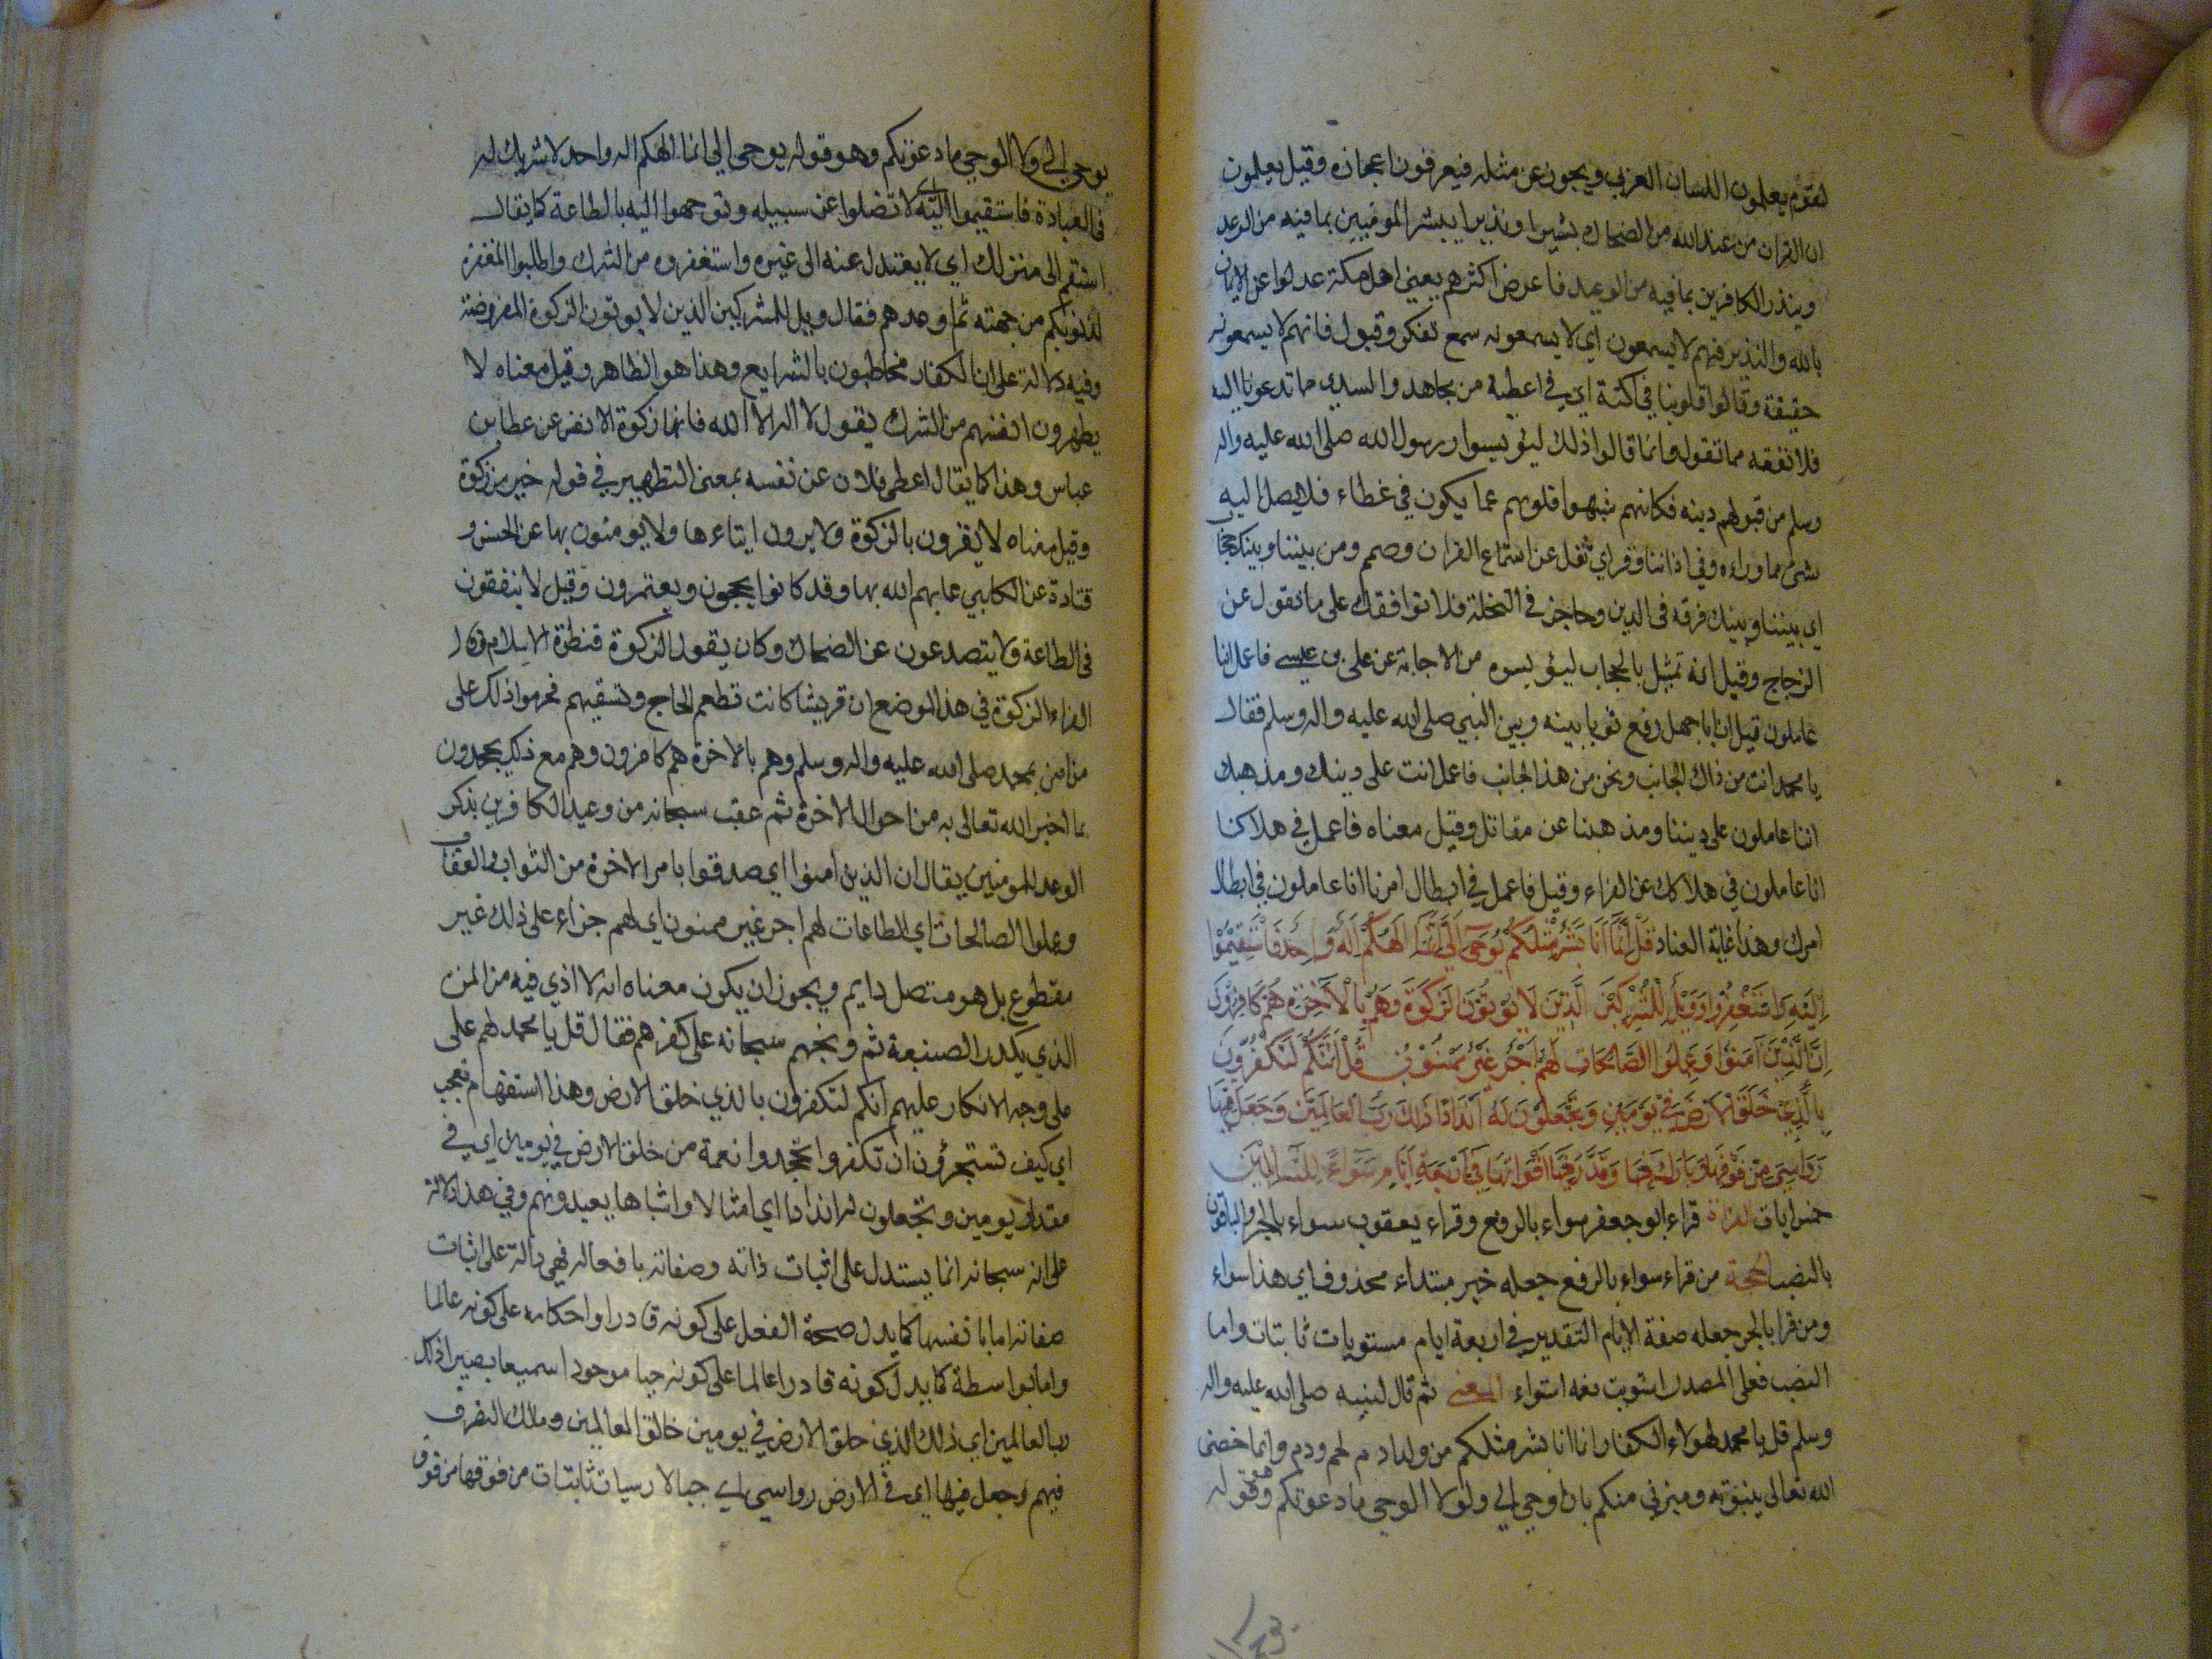 لقوم يعلمون اللسان العربي ويعجزون عن مثله فيعرفون اعجازه وقيل يعلمون
ان القران من عند الله من الضحاك بشيرا ونذيرا يبشر المومنين بما فيه من الوعد
وينذر الكافرين بما فيه من الوعيد فاعرض اكثرهم يعني اهل مكة عدلوا عن الايمان
بالله والنذير فهم لا يسمعون اي لا يسمعونه سمع تفكر وقبول فانهم لا يسمعونه
حقيقة وقالوا قلوبنا في اكنة اي في اغطية من مجاهد والسدي مما تدعونا اليه
فلا نفقه مما تقول وانما قالوا ذلك ليؤيسوا رسول الله صلى الله عليه واله
وسلم من قبولهم دينه فكانهم شبهوا قلوبهم عما يكون في غطاء فلا يصل اليه
شيء مما وراءه وفي اذاننا وقر اي ثقل عن استماع القران وصمم ومن بيننا وبينك حجاب
اي بيننا وبينك فرقه في الدين وحاجز في النحلة فلا نوافقك على ما تقول عن
الزجاج وقيل انه تمثيل بالحجاب ليؤيسوه من الاجابة عن علي بن عيسى فاعمل اننا
عاملون قيل ان اباجهل رفع ثوبا بينه وبين النبي صلى الله عليه واله وسلم فقال
يا محمد انت من ذاك الجانب ونحن من هذا الجانب فاعمل انت على دينك ومذهبك
اننا عاملون على ديننا ومذهبنا عن مقاتل وقيل معناه فاعمل في هلاكنا
انا عاملون في هلاكك عن الفراء وقيل فاعمل في ابطال امرنا انا عاملون في ابطال
امرك وهذا غاية العناد قُلْ اِنَّمَا اَنَا بَشَرٌ مِثْلُكُمْ يُوحَى اِلَيَّ اَنَّمَا اِلَهُكُمْ اِلَهٌ وَاحِدٌ فَاسْتَقِيمُوا
اِلَيْهِ وَاسْتَغْفِرُوهُ وَوَيْلٌ لِلْمُشْرِكِينَ الَّذِينَ لَا يُؤْتُونَ الزَّكَوةَ وَهُمْ بِالْاَخِرَةِ هُمْ كَافِرُونَ
اِنَّ الَّذِينَ آمَنُوا وَعَمِلُوا الصَّالِحَاتِ لَهُمْ اَجْرٌ غَيْرُ مَمْنُونٍ قُلْ اَئِنَّكُمْ لَتَكْفُرُونَ
بِالَّذِي خَلَقَ الْاَرْضَ فِي يَوْمَيْنِ وَتَجْعَلُونَ لَهُ اَنْدَادًا ذَلِكَ رَبُّ الْعَالَمِينَ وَجَعَلَ فِيهَا
رَوَاسِيَ مِنْ فَوْقِهَا وَبَارَكَ فِيهَا وَقَدَّرَ فِيهَا اَقْوَاتَهَا فِي اَرْبَعَةِ اَيَّامٍ سَوَاءً لِلسَّائِلِينَ
خمس ايات القراءة قراء ابو جعفر سواء بالرفع وقراء يعقوب سواء بالجر والباقون
بالنصب الحجة من قراء سواء بالرفع جعله خبر مبتداء محذوف اي هذا سواء
ومن قرا بالجر جعله صفة الايام التقدير في اربعة ايام مستويات ثابتات واما
النصب فعلى المصدر استوت استواء المعنى ثم قال لنبيه صلى الله عليه واله
وسلم قل يا محمد لهولاء الكفار انا انا بشر مثلكم من ولد ادم لحم ودم وانما خصني
الله تعالى بنبوته وميزني منكم بان اوحى الي ولولا الوحي ما دعوتكم وهو قوله
يوحى الي ولا الوحي ما دعوتكم وهو قوله يوحى الي انما الهكم اله واحد لا شريك له
في العبادة فاستقيموا اليه اي لا تضلوا عن سبيله وتوجهوا اليه بالطاعة كما يقال
استقم الى منزلك اي لا يعتدل عنه الى غيره واستغفروه من الشرك واطلبوا المغفرة
لذنوبكم من جهته ثم اوعدهم فقال وويل للمشركين الذين لا يوتون الزكوة المفروضة
وفيه دلالة على ان الكفار مخاطبون بالشرايع وهذا هو الظاهر وقيل معناه لا
يطهرون انفسهم من الشرك بقول لا اله الا الله فانها زكوة الانفس عن عطا بن
عباس وهذا كما يقال اعطى فلان عن نفسه بمعنى التطهير في قوله خير من زكوة
وقيل معناه لا يقرون بالزكوة ولا يرون ايتاءها ولا يومنون بها عن الحسن و
قتادة عن الكلبي عابهم الله بها وقد كانوا يحجون ويعتمرون وقيل لا ينفقون
في الطاعة ولا يتصدعون عن الضحاك وكان يقول الزكوة قنطرة الاسلام وقال
الفراء الزكوة في هذا الموضع ان قريشا كانت تطعم الحاج وتسقيهم فحرموا ذلك على
من امن بمحمد صلى الله عليه واله وسلم وهم بالاخرة هم كافرون وهم مع ذلك يجحدون
بما اخبر الله تعالى به من احوال الاخرة ثم عقب سبحانه من وعيد الكافرين بذكر
الوعد للمومنين يقال ان الذين امنوا اي صدقوا بامر الاخرة من الثواب والعقاب
وعملوا الصالحات اي الطاعات لهم اجر غير ممنون اي لهم جزاء على ذلك غير
مقطوع بل هو متصل دايم ويجوز ان يكون معناه انه لا اذي فيه من المن
الذي يكدر الصنيعة ثم وبخهم سبحانه على كفرهم فقال قل يا محمد لهم على
على وجه الانكار عليهم ائنكم لتكفرون بالذي خلق الارض وهذا استفهام تعجب
اي كيف تستجرؤن ان تكفروا وتجحدوا نعمة من خلق الارض في يومين اي في
مقدار يومين وتجعلون له اندادا اي امثالا واشباها يعبدونهم وفي هذا دلالة
على انه سبحانه انما يستدل على اثبات ذاته وصفاته بافعاله فهي دالة على اثبات
صفاته اما بانفسها كما يدل صحة الفعل على كونه قادرا واحكامه على كونه عالما
واما بواسطة كما يدل كونه قادرا عالما على كونه حيا موجودا سميعا بصيرا ذلك
رب العالمين اي ذلك الذي خلق الارض في يومين خالق العالمين ومالك التصرف
فيهم وجعل فيها اي في الارض رواسي اي جبالا رسيات ثابتات من فوقها من فوق